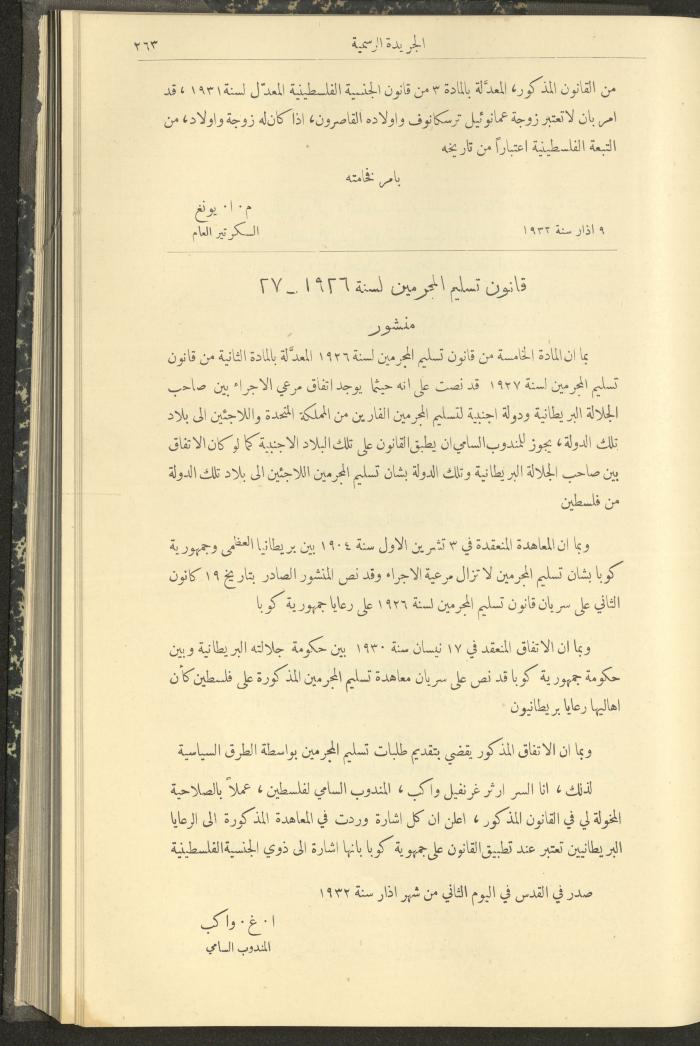 الجريدة الرسمية
٢٦٣
من القانون المذكور، المعدَّلة بالمادة ٣ من قانون الجنسية الفلسطينية المعدّل لسنة ١٩٣١، قد
امر بان لا تعتبر زوجة عمانوئيل ترسكانوف واولاده القاصرون، اذا كان له زوجة واولاد، من
التبعة الفلسطينية اعتباراً من تاريخه
بامر فخامته
م٠ ا٠ يونغ
٩ اذار سنة ١٩٣٢
السكرتير العام
قانون تسليم المجرمين لسنة ١٩٢٦ـ٢٧
منشور
بما ان المادة الخامسة من قانون تسليم المجرمين لسنة ١٩٢٦ المعدَّلة بالمادة الثانية من قانون
تسليم المجرمين لسنة ١٩٢٧ قد نصت على انه حيثما يوجد اتفاق مرعي الاجراء بين صاحب
الجلالة البريطانية ودولة اجنبية لتسليم المجرمين الفارين من المملكة المتحدة واللاجئين الى بلاد
تلك الدولة، يجوز للمندوب السامي ان يطبق القانون على تلك البلاد الاجنبية كما لو كان الاتفاق
بين صاحب الجلالة البريطانية وتلك الدولة بشان تسليم المجرمين اللاجئين الى بلاد تلك الدولة
من فلسطين
وبما ان المعاهدة المنعقدة في ٣ تشرين الاول سنة ١٩٠٤ بين بريطانيا العظمى وجمهورية
كوبا بشان تسليم المجرمين لا تزال مرعية الاجراء وقد نص المنشور الصادر بتاريخ ١٩ كانون
الثاني على سريان قانون تسليم المجرمين لسنة ١٩٢٦ على رعايا جمهورية كوبا
وبما ان الاتفاق المنعقد في ١٧ نيسان سنة ١٩٣٠ بين حكومة جلالته البريطانية وبين
حكومة جمهورية كوبا قد نص على سريان معاهدة تسليم المجرمين المذكورة على فلسطين كأن
اهاليها رعايا بريطانيون
وبما ان الاتفاق المذكور يقضي بتقديم طلبات تسليم المجرمين بواسطة الطرق السياسية
لذلك، انا السر ارثر غرنفيل واكب، المندوب السامي لفلسطين، عملاً بالصلاحية
المخولة لي في القانون المذكور، اعلن ان كل اشارة وردت في المعاهدة المذكورة الى الرعايا
البريطانيين تعتبر عند تطبيق القانون على جمهوية كوبا بانها اشارة الى ذوي الجنسية الفلسطينية
صدر في القدس في اليوم الثاني من شهر اذار سنة ١٩٣٢
ا٠ غ٠ واكب
المندوب السامي